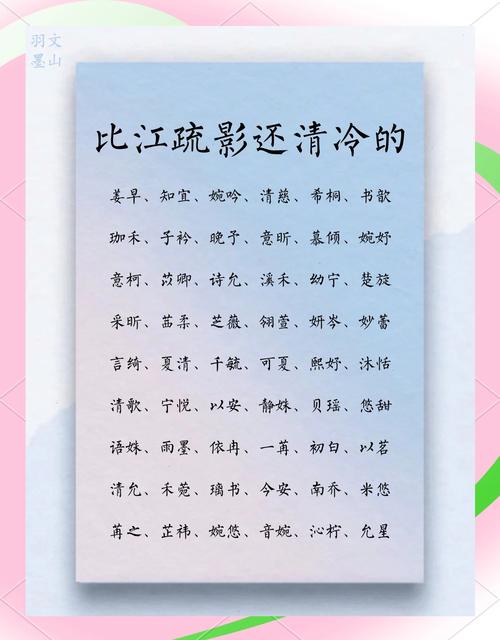 羽文
墨山
比江疏影还清冷的
姜早、知宜、婉吟、清慈、希桐、书歆
珈禾、子衿、晚予、意昕、慕倾、婉妤
意柯、苡卿、诗允、溪禾、幼宁、楚旋
采昕、茜柔、芝薇、翎萱、妍岑、妙蕾
言绮、夏清、千毓、可夏、熙妤、沐恬
清歌、宁悦、以安、静姝、贝瑶、悠甜
语姝、雨墨、依冉、一苒、初白、以茗
清允、禾菀、璃书、今安、南乔、米悠
苒之、芷祎、婉悠、音婉、沁柠、允星